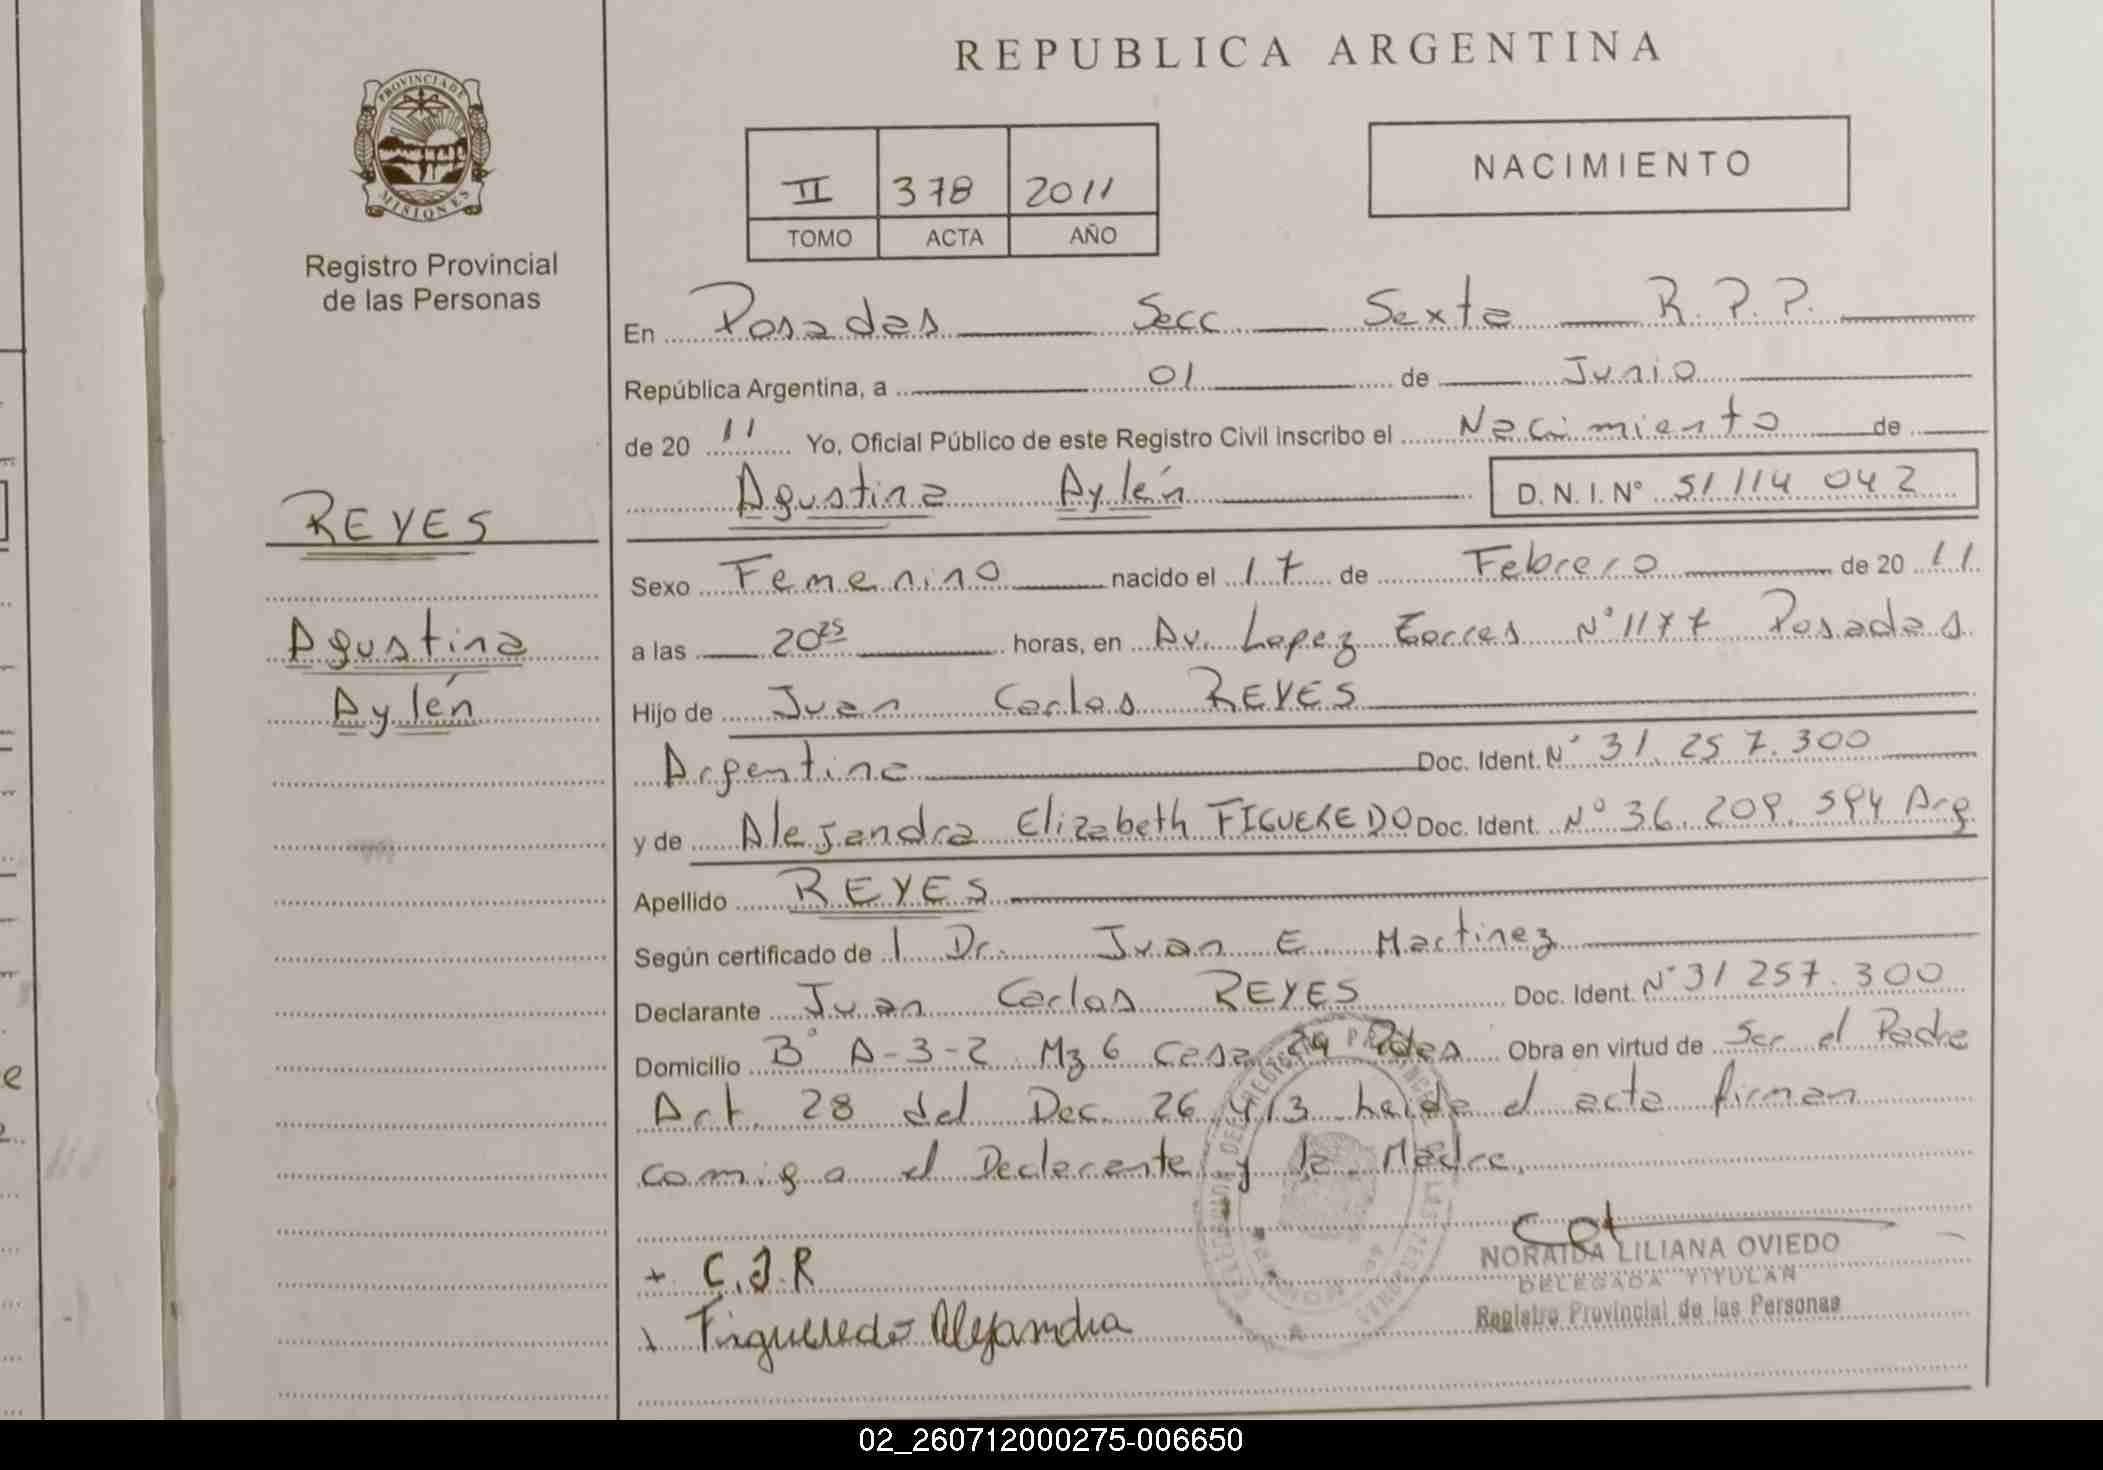 PROVINCIA DE
MISIONES
Registro Provincial
de las Personas
REYES
Agustina
Aylén
REPUBLICA ARGENTINA
II 378 2011
TOMO ACTA AÑO
NACIMIENTO
En Posadas Secc Sexta R.P.P.
República Argentina, a 01 de Junio
de 20 11 Yo, Oficial Público de este Registro Civil inscribo el Nacimiento de
Agustina Aylén D.N.I.Nº 51 114 042
Sexo Femenino nacido el 17 de Febrero de 20 11
a las 20 25 horas, en Av. Lopez Torres Nº 1177 Posadas
Hijo de Juan Carlos REYES
Argentino Doc. Ident. Nº 31.257.300
y de Alejandra Elizabeth FIGUEREDO Doc. Ident. Nº 36.209.594 Arg
Apellido REYES
Según certificado de l Dr. Juan E Martinez
Declarante Juan Carlos REYES Doc. Ident. Nº 31 257.300
Domicilio Bº A-3-2 Mz 6 Casa 24 Pdas Obra en virtud de Ser el Padre
Art. 28 del Dec. 26 413 Leida el acta firman
comigo el Declarante y la Madre.
+ C.J.R
x Figueredo Alejandra
NORAIDA LILIANA OVIEDO
DELEGADA TITULAR
Registro Provincial de las Personas
02_260712000275-006650